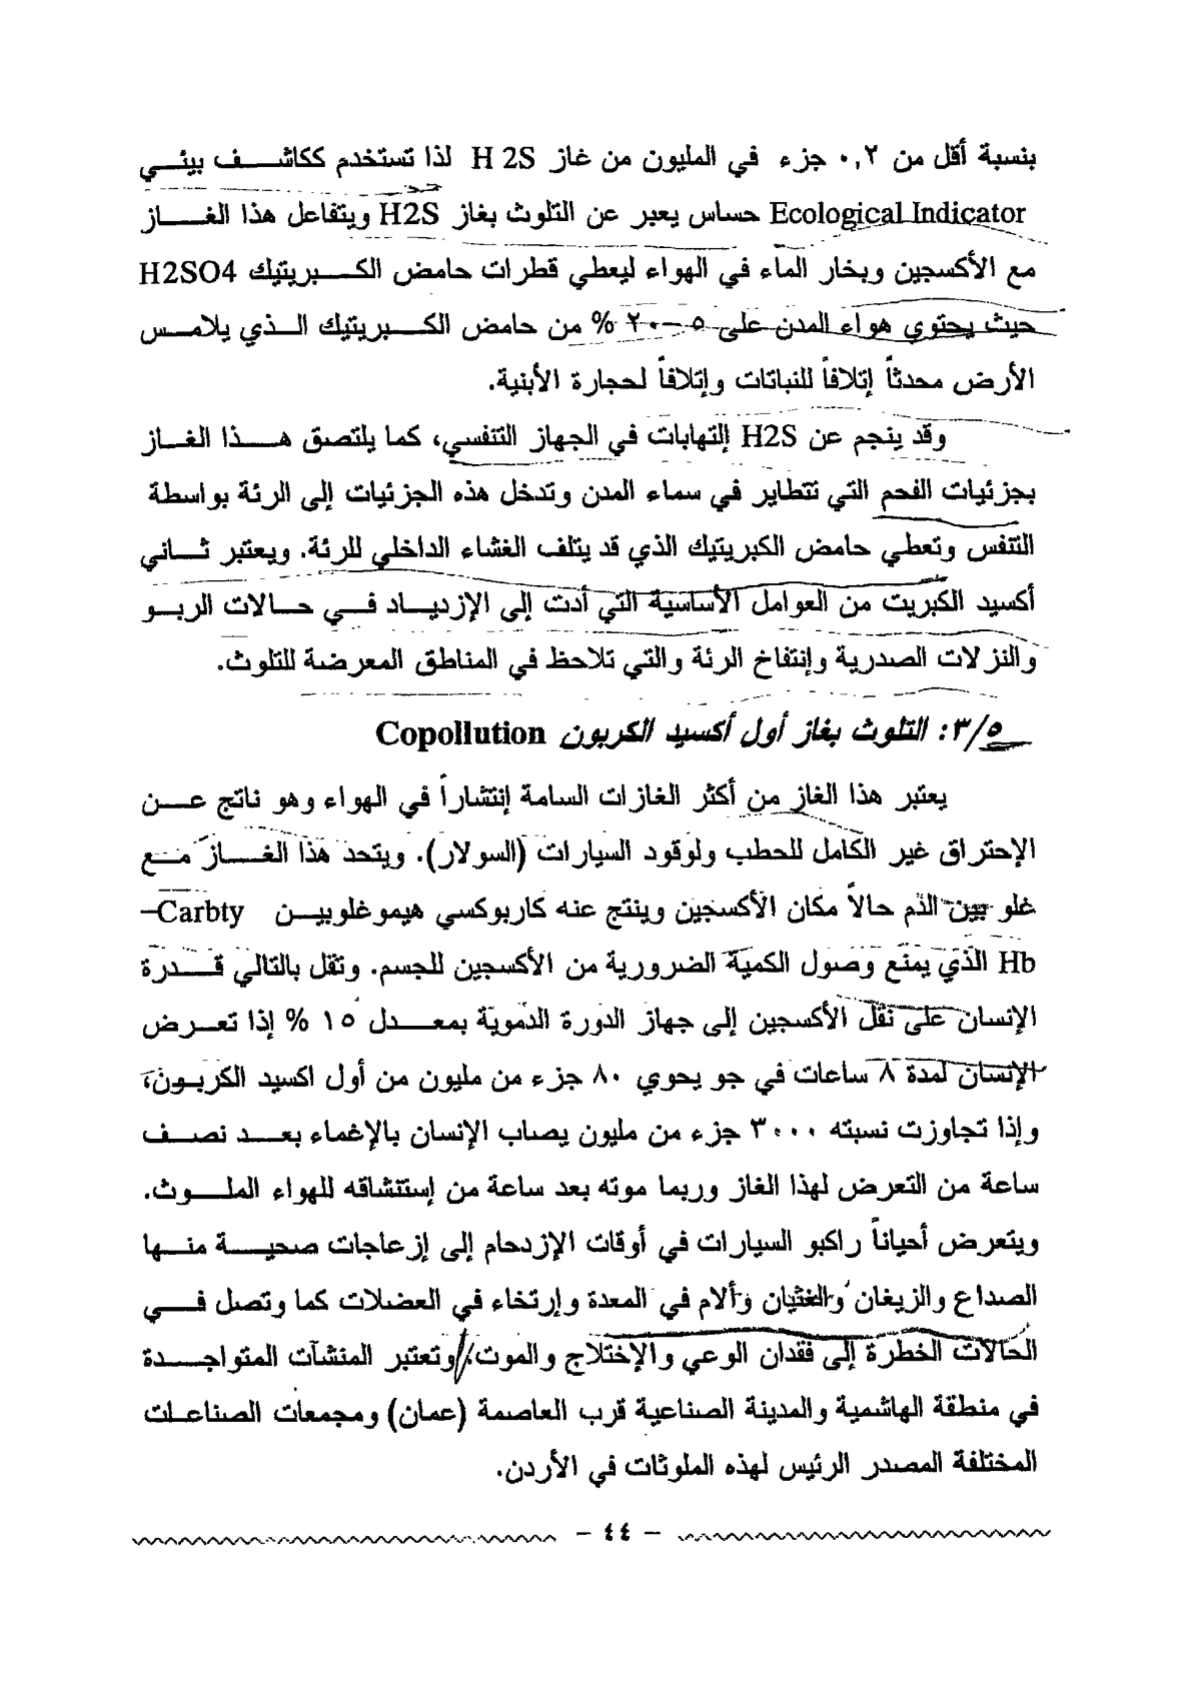 بنسبة أقل من ٠,٢ جزء في المليون من غاز H 2S لذا تستخدم ككاشف بيئي
Ecological Indicator حساس يعبر عن التلوث بغاز H2S ويتفاعل هذا الغاز
مع الأكسجين وبخار الماء في الهواء ليعطي قطرات حامض الكبريتيك H2SO4
حيث يحتوي هواء المدن على ٥–٢٠ % من حامض الكبريتيك الذي يلامس
الأرض محدثاً إتلافاً للنباتات وإتلافاً لحجارة الأبنية.
وقد ينجم عن H2S إلتهابات في الجهاز التنفسي، كما يلتصق هذا الغاز
بجزئيات الفحم التي تتطاير في سماء المدن وتدخل هذه الجزئيات إلى الرئة بواسطة
التنفس وتعطي حامض الكبريتيك الذي قد يتلف الغشاء الداخلي للرئة. ويعتبر ثاني
أكسيد الكبريت من العوامل الأساسية التي أدت إلى الإزدياد في حالات الربو
والنزلات الصدرية وإنتفاخ الرئة والتي تلاحظ في المناطق المعرضة للتلوث.
٣/٥: التلوث بغاز أول أكسيد الكربون Copollution
يعتبر هذا الغاز من أكثر الغازات السامة إنتشاراً في الهواء وهو ناتج عن
الإحتراق غير الكامل للحطب ولوقود السيارات (السولار). ويتحد هذا الغاز مع
غلو بين الدم حالاً مكان الأكسجين وينتج عنه كاربوكسي هيموغلوبين Carbty–
Hb الذي يمنع وصول الكمية الضرورية من الأكسجين للجسم. وتقل بالتالي قدرة
الإنسان على نقل الأكسجين إلى جهاز الدورة الدموية بمعدل ١٥ % إذا تعرض
الإنسان لمدة ٨ ساعات في جو يحوي ٨٠ جزء من مليون من أول اكسيد الكربون،
وإذا تجاوزت نسبته ٣٠٠٠ جزء من مليون يصاب الإنسان بالإغماء بعد نصف
ساعة من التعرض لهذا الغاز وربما موته بعد ساعة من إستنشاقه للهواء الملوث.
ويتعرض أحياناً راكبو السيارات في أوقات الإزدحام إلى إزعاجات صحية منها
الصداع والزيغان والغثيان وألام في المعدة وإرتخاء في العضلات كما وتصل في
الحالات الخطرة إلى فقدان الوعي والإختلاج والموت. وتعتبر المنشآت المتواجدة
في منطقة الهاشمية والمدينة الصناعية قرب العاصمة (عمان) ومجمعات الصناعات
المختلفة المصدر الرئيس لهذه الملوثات في الأردن.
– ٤٤ –